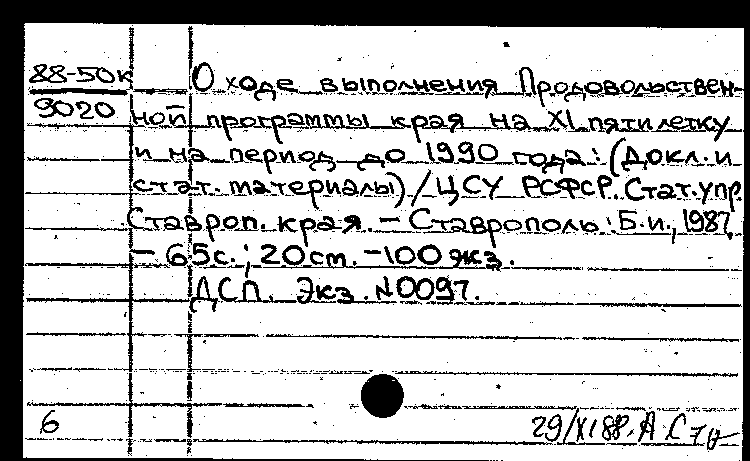 88-50к
9020
О ходе выполнения Продовольствен-
ной программы края на XI пятилетку
и на период до 1990 года: (Докл. и
стат. материалы) / ЦСУ РСФСР. Стат. упр.
Ставроп. края. – Ставрополь: Б.и., 1987.
– 65с.; 20 ст. – 100 экз.
ДСП. Экз. N0097.
6
29/XI 88. А.